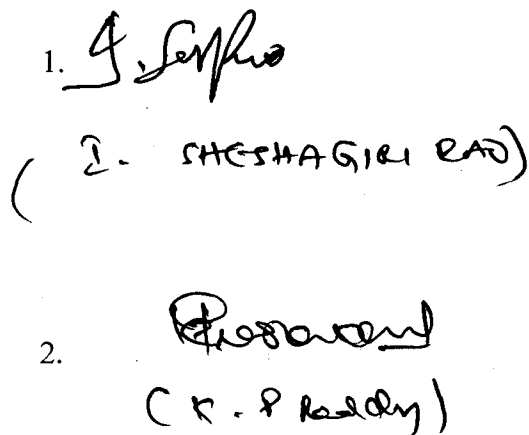 1.
( I. SHESHAGIRI RAO)
2.
( K. P Reddy)